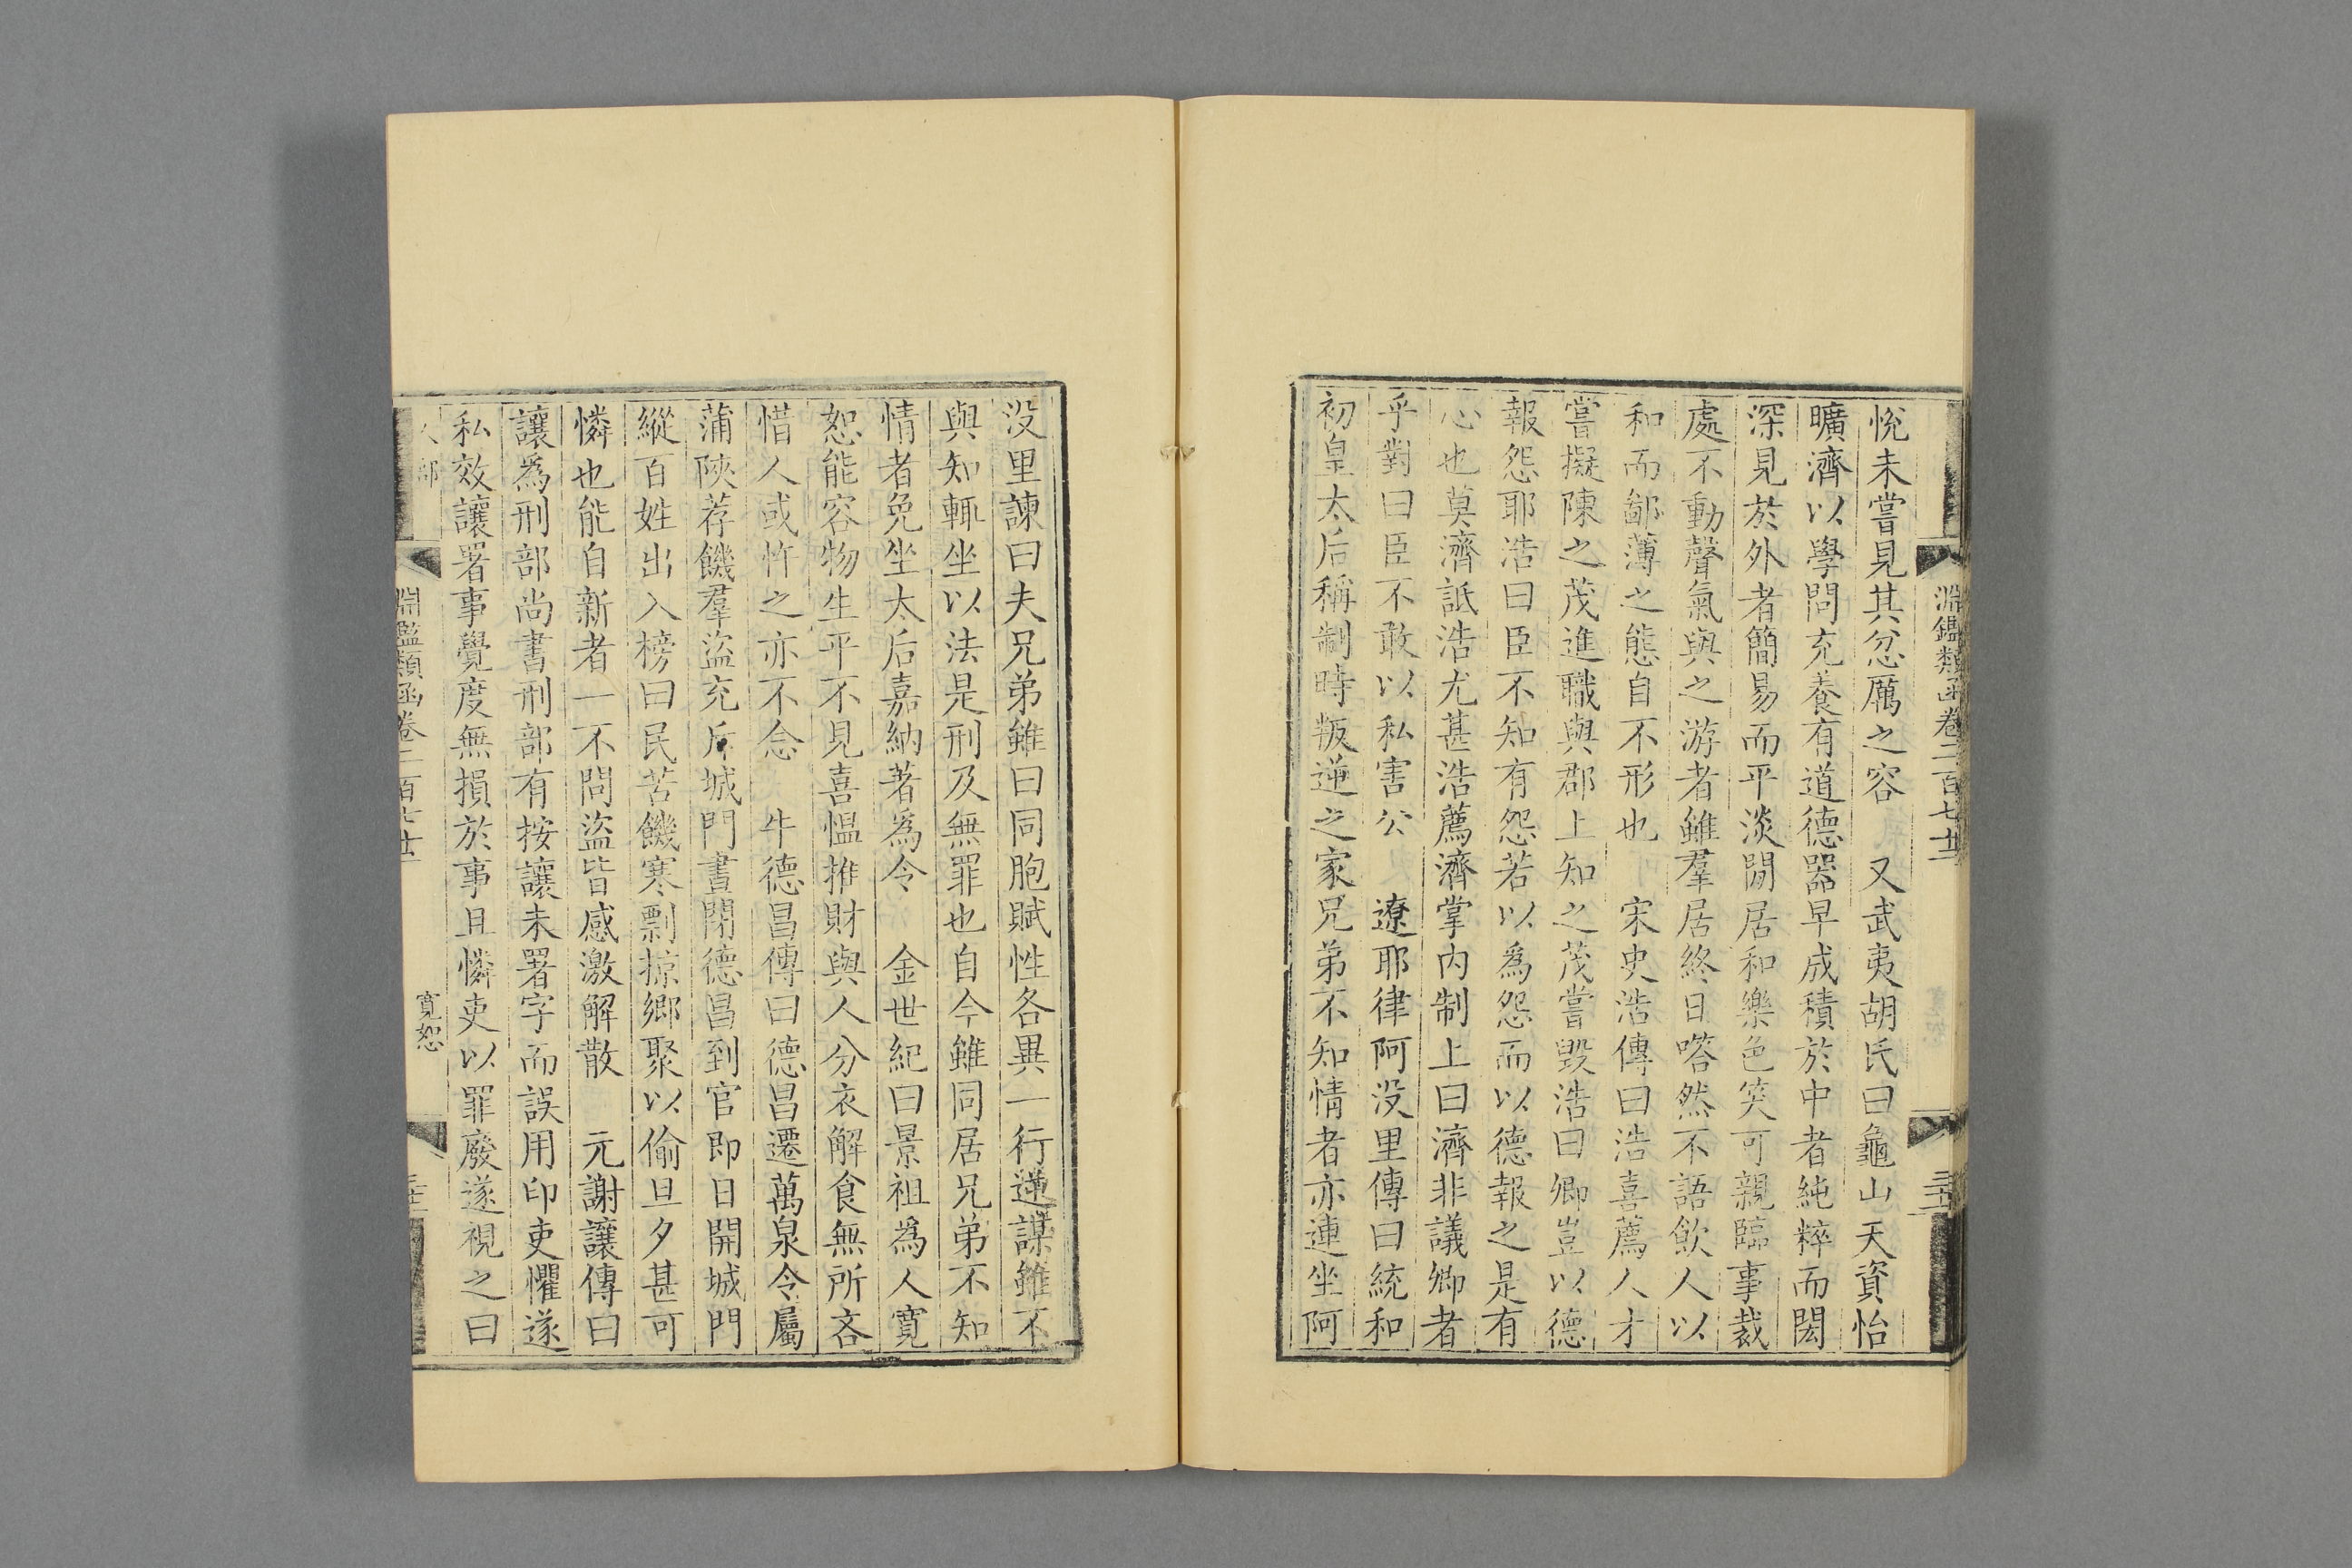 淵鑑類函卷二百七十
悅未嘗見其忿厲之容　又武夷胡氏曰龜山天資怡
曠濟以學問充養有道德器早成積於中者純粹而閎
深見於外者簡易而平淡閒居和樂色笑可親臨事裁
處不動聲氣與之游者雖羣居終日嗒然不語飲人以
和而鄙薄之態自不形也　宋史浩傳曰浩喜薦人才
嘗擬陳之茂進職與郡上知之茂嘗毀浩曰卿豈以德
報怨耶浩曰臣不知有怨若以爲怨而以德報之是有
心也莫濟詆浩尤甚浩薦濟掌內制上曰濟非議卿者
乎對曰臣不敢以私害公　遼耶律阿没里傳曰統和
初皇太后稱制時叛逆之家兄弟不知情者亦連坐阿
没里諫曰夫兄弟雖曰同胞賦性各異一行逆謀雖不
與知輒坐以法是刑及無罪也自今雖同居兄弟不知
情者免坐太后嘉納著爲令　金世紀曰景祖爲人寬
恕能容物生平不見喜慍推財與人分衣解食無所吝
惜人或忤之亦不念　牛德昌傳曰德昌遷萬泉令屬
蒲陜荐饑羣盜充斥城門晝閉德昌到官即日開城門
縱百姓出入榜曰民苦饑寒剽掠鄉聚以偷旦夕甚可
憐也能自新者一不問盜皆感激解散　元謝讓傳曰
讓爲刑部尚書刑部有按讓未署字而誤用印吏懼遂
私效讓署事覺度無損於事且憐吏以罪廢遂視之曰
人部
淵鑑類函卷二百七十
寬恕